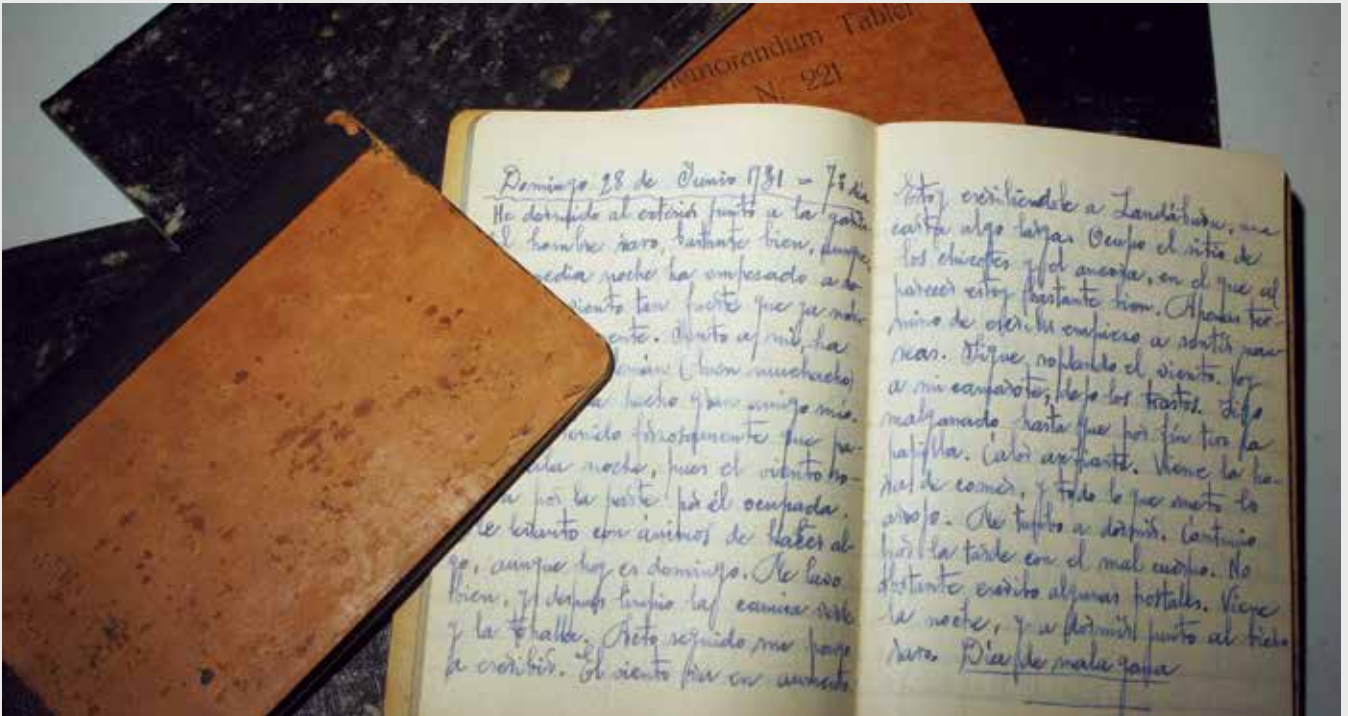 Memorandum Tablet
N. 221
Domingo 28 de Junio 1931 = 7º dia
He dormido al exterior junto a la
el hombre raro, bastante bien, aunque,
media noche ha empesado a so-
viento tan fuerte que ya
ente. Junto a mi, ha
(buen muchacho)
a hecho gran amigo mio.
tenido forzosamente que pa-
noche, pues el viento so-
a por la parte por él ocupada.
e levanto con ánimos de hacer al-
go, aunque hoy es domingo. Me lavo
bien, y despues limpio la camisa
y la tohalla. Acto seguido me pongo
a escribir. El viento en aumento.
Estoy escribiendole a Landáburu, una
carta algo larga. Ocupo el sitio de
los chicotes y el ancora, en el que al
parecer estoy bastante bien. Apenas ter-
mino de escribir empiezo a sentir nau-
seas. Sigue soplando el viento. Voy
a mi camarote, dejo los trastos. Sigo
malganado hasta que por fin tiro la
papilla. Calor asfixiante. Viene la ho-
ra de comer, y todo lo que meto lo
arrojo. Me tumbo a dormir. Continuo
por la tarde con el mal cuerpo. No
obstante escribo algunas postales. Viene
la noche, y a dormir junto al bicho
raro. Dia de mala gana